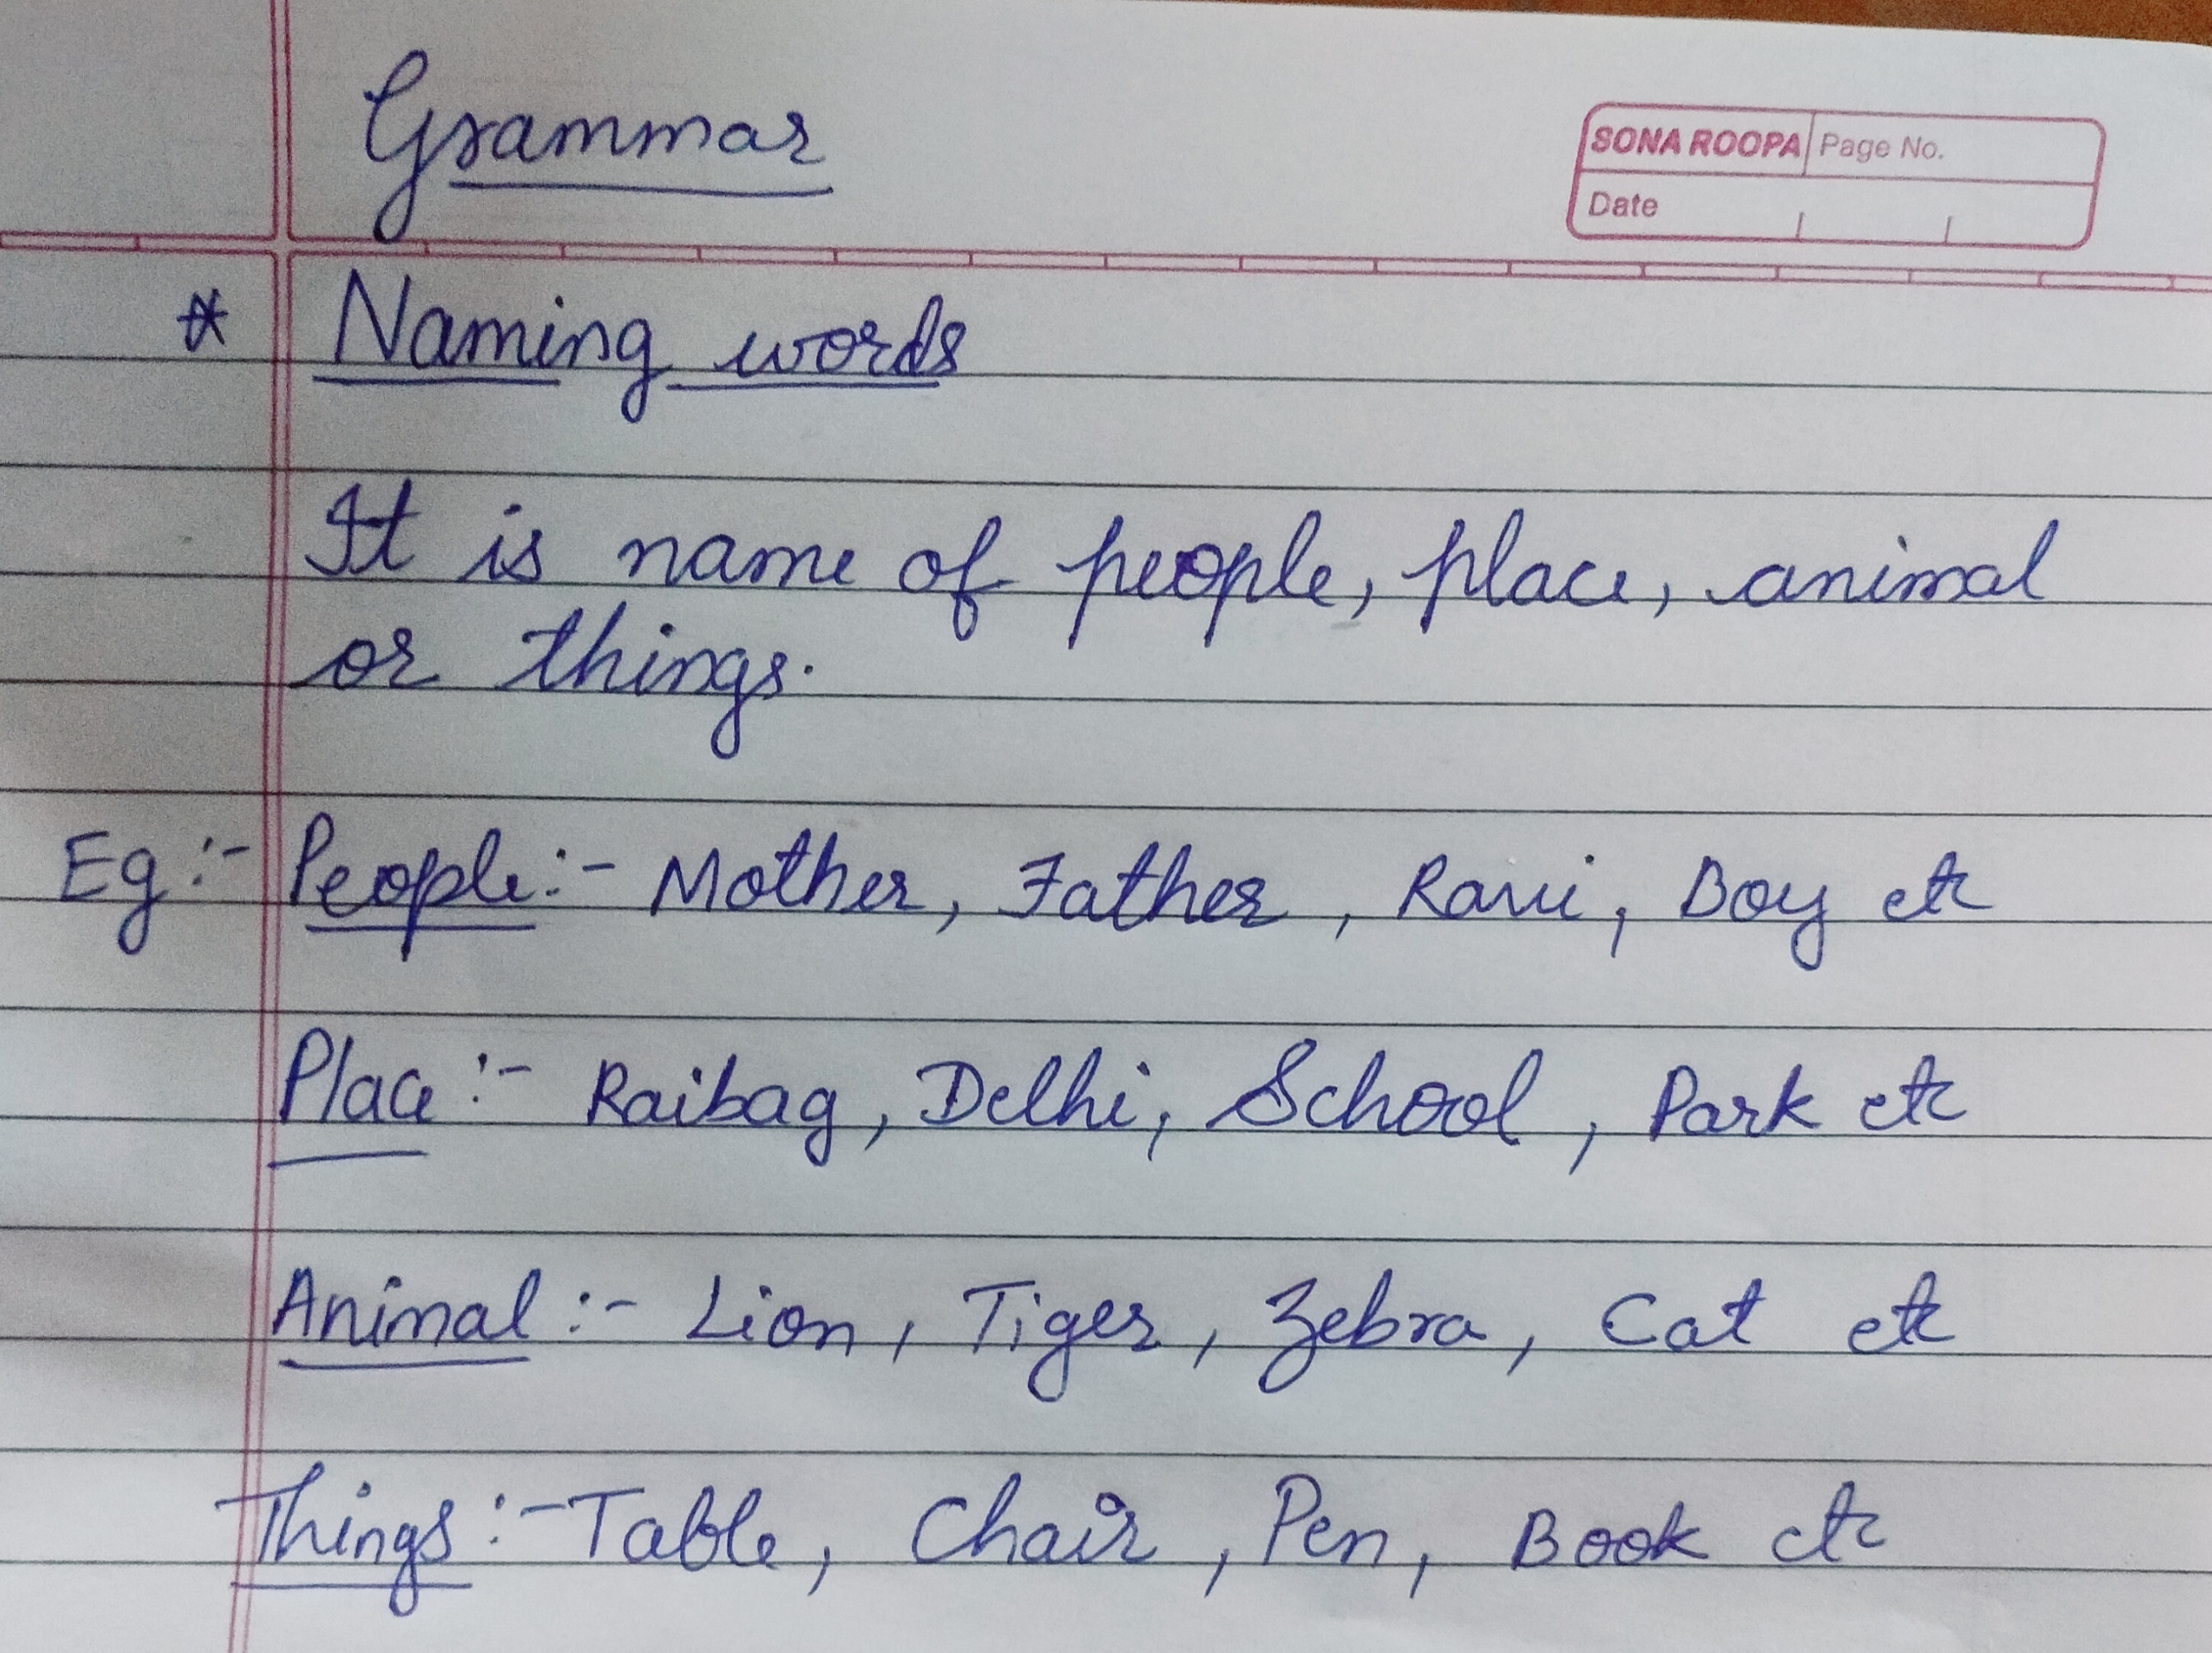 Grammar
SONA ROOPA Page No.
Date
* Naming words
It is name of people, place, animal
or things.
Eg :- People :- Mother, Father, Ravi, Boy etc
Place :- Raibag, Delhi, School, Park etc
Animal :- Lion, Tiger, Zebra, Cat etc
Things :- Table, Chair, Pen, Book etc